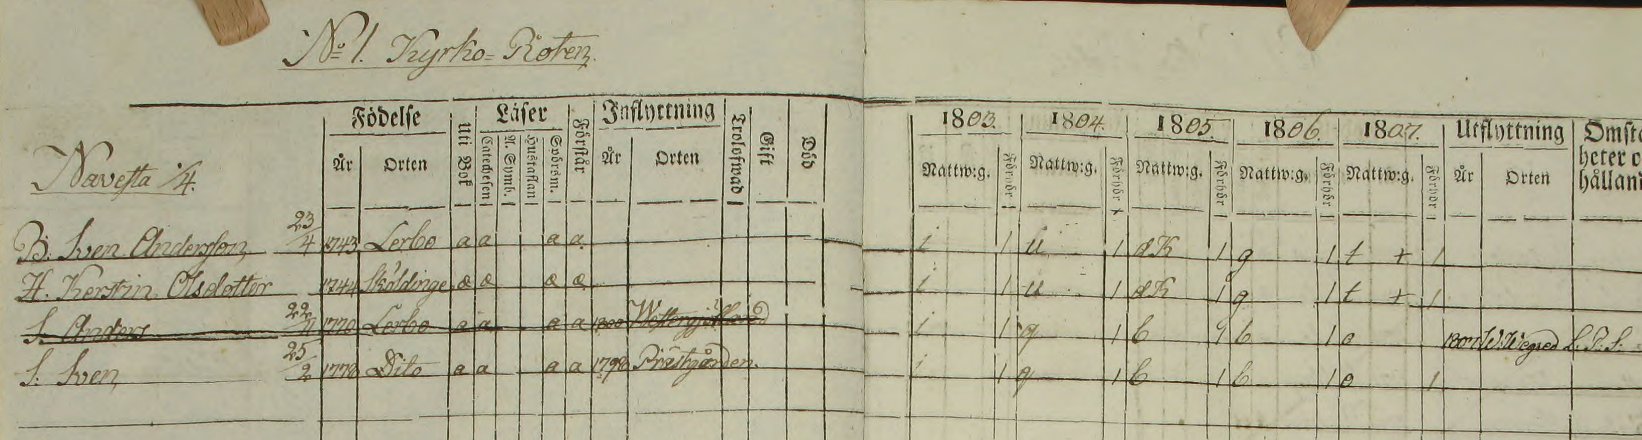 No 1. Kyrko=Roten.
Födelse Läser Inflyttning 1803. 1804. 1805. 1806. 1807. Utflyttning
Nävesta 1/4. År Orten Uti Bok Catechesen A. Symb. Hustaflan Svörsm. Förstår År Orten Trolofwad Gift Död Nattw:g. Förhör Nattw:g. Förhör Nattw:g. Förhör Nattw:g. Förhör Nattw:g. Förhör År Orten
B. Sven Andersson 23/4 1743 Lerbo a a a a i 1 u 1 dK 1 g 1 t + 1
H. Kerstin Olsdotter 1744 Sköldinge a a a a i 1 u 1 dK 1 g 1 t + 1
S. Anders 1770 Lerbo a a a a 1800 Westergötland i 1 q 1 b 1 b 1 o 1807 L. P. S.
S. Sven 25/2 1778 Dito a a a a 1798 Prästgården. i 1 q 1 b 1 b 1 o 1